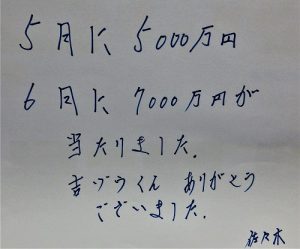 5月に 5000万円
6月に 7000万円が
当たりました.
吉ゾウくん ありがとう
ございました.
佐々木